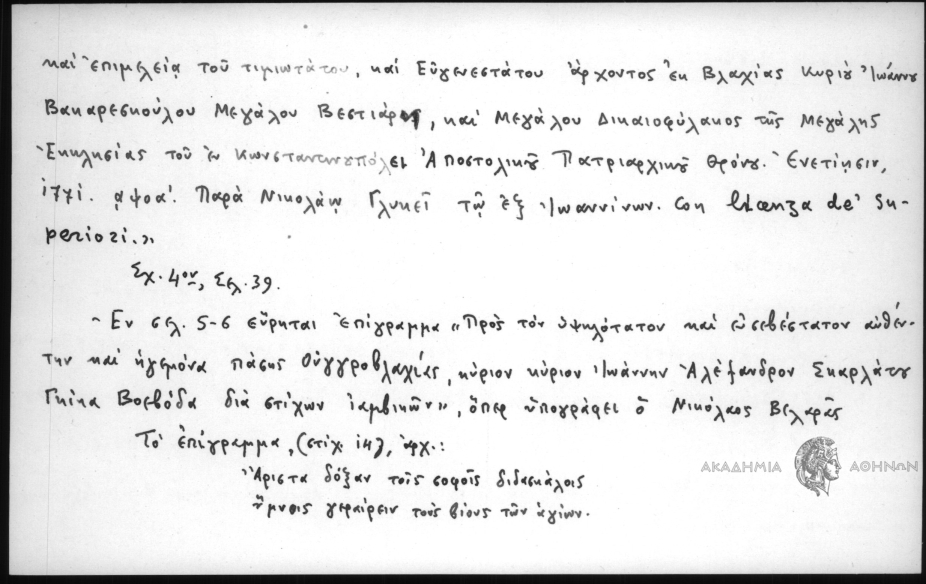 καὶ ἐπιμελείᾳ τοῦ τιμιωτάτου, καὶ Εὐγενεστάτου ἄρχοντος ἐκ Βλαχίας Κυρίȣ Ἰωάννου
Βακαρεσκούλου Μεγάλου Βεστιάρη, καὶ Μεγάλου Δικαιοφύλακος τῆς Μεγάλης
Ἐκκλησίας τοῦ ἐν Κωνσταντινουπόλει Ἀποστολικȣ͂ Πατριαρχικȣ͂ Θρόνȣ. Ἐνετίῃσιν,
1771. ͵αψοα΄. Παρὰ Νικολάῳ Γλυκεῖ τῷ ἐξ Ἰωαννίνων. Con licenza de' Su-
periori.»
Σχ. 4ον, Σελ. 39.
Ἐν σελ. 5-6 εὕρηται ἐπίγραμμα «Πρὸς τὸν ὑψηλότατον καὶ εὐσεβέστατον αὐθέν-
την καὶ ἡγεμόνα πάσης Οὑγγροβλαχίας, κύριον κύριον Ἰωάννην Ἀλέξανδρον Σκαρλάτȣ
Γκίκα Βοεβόδα διὰ στίχων ἰαμβικῶν», ὅπερ ὑπογράφει ὁ Νικόλαος Βελαρᾶς
Τὸ ἐπίγραμμα, (στίχ. 14), ἀρχ.:
Ἄριστα δόξαν τοῖς σοφοῖς διδασκάλοις
ὕμνοις γεραίρειν τοὺς βίους τῶν ἁγίων.
ΑΚΑΔΗΜΙΑ ΑΘΗΝΩΝ